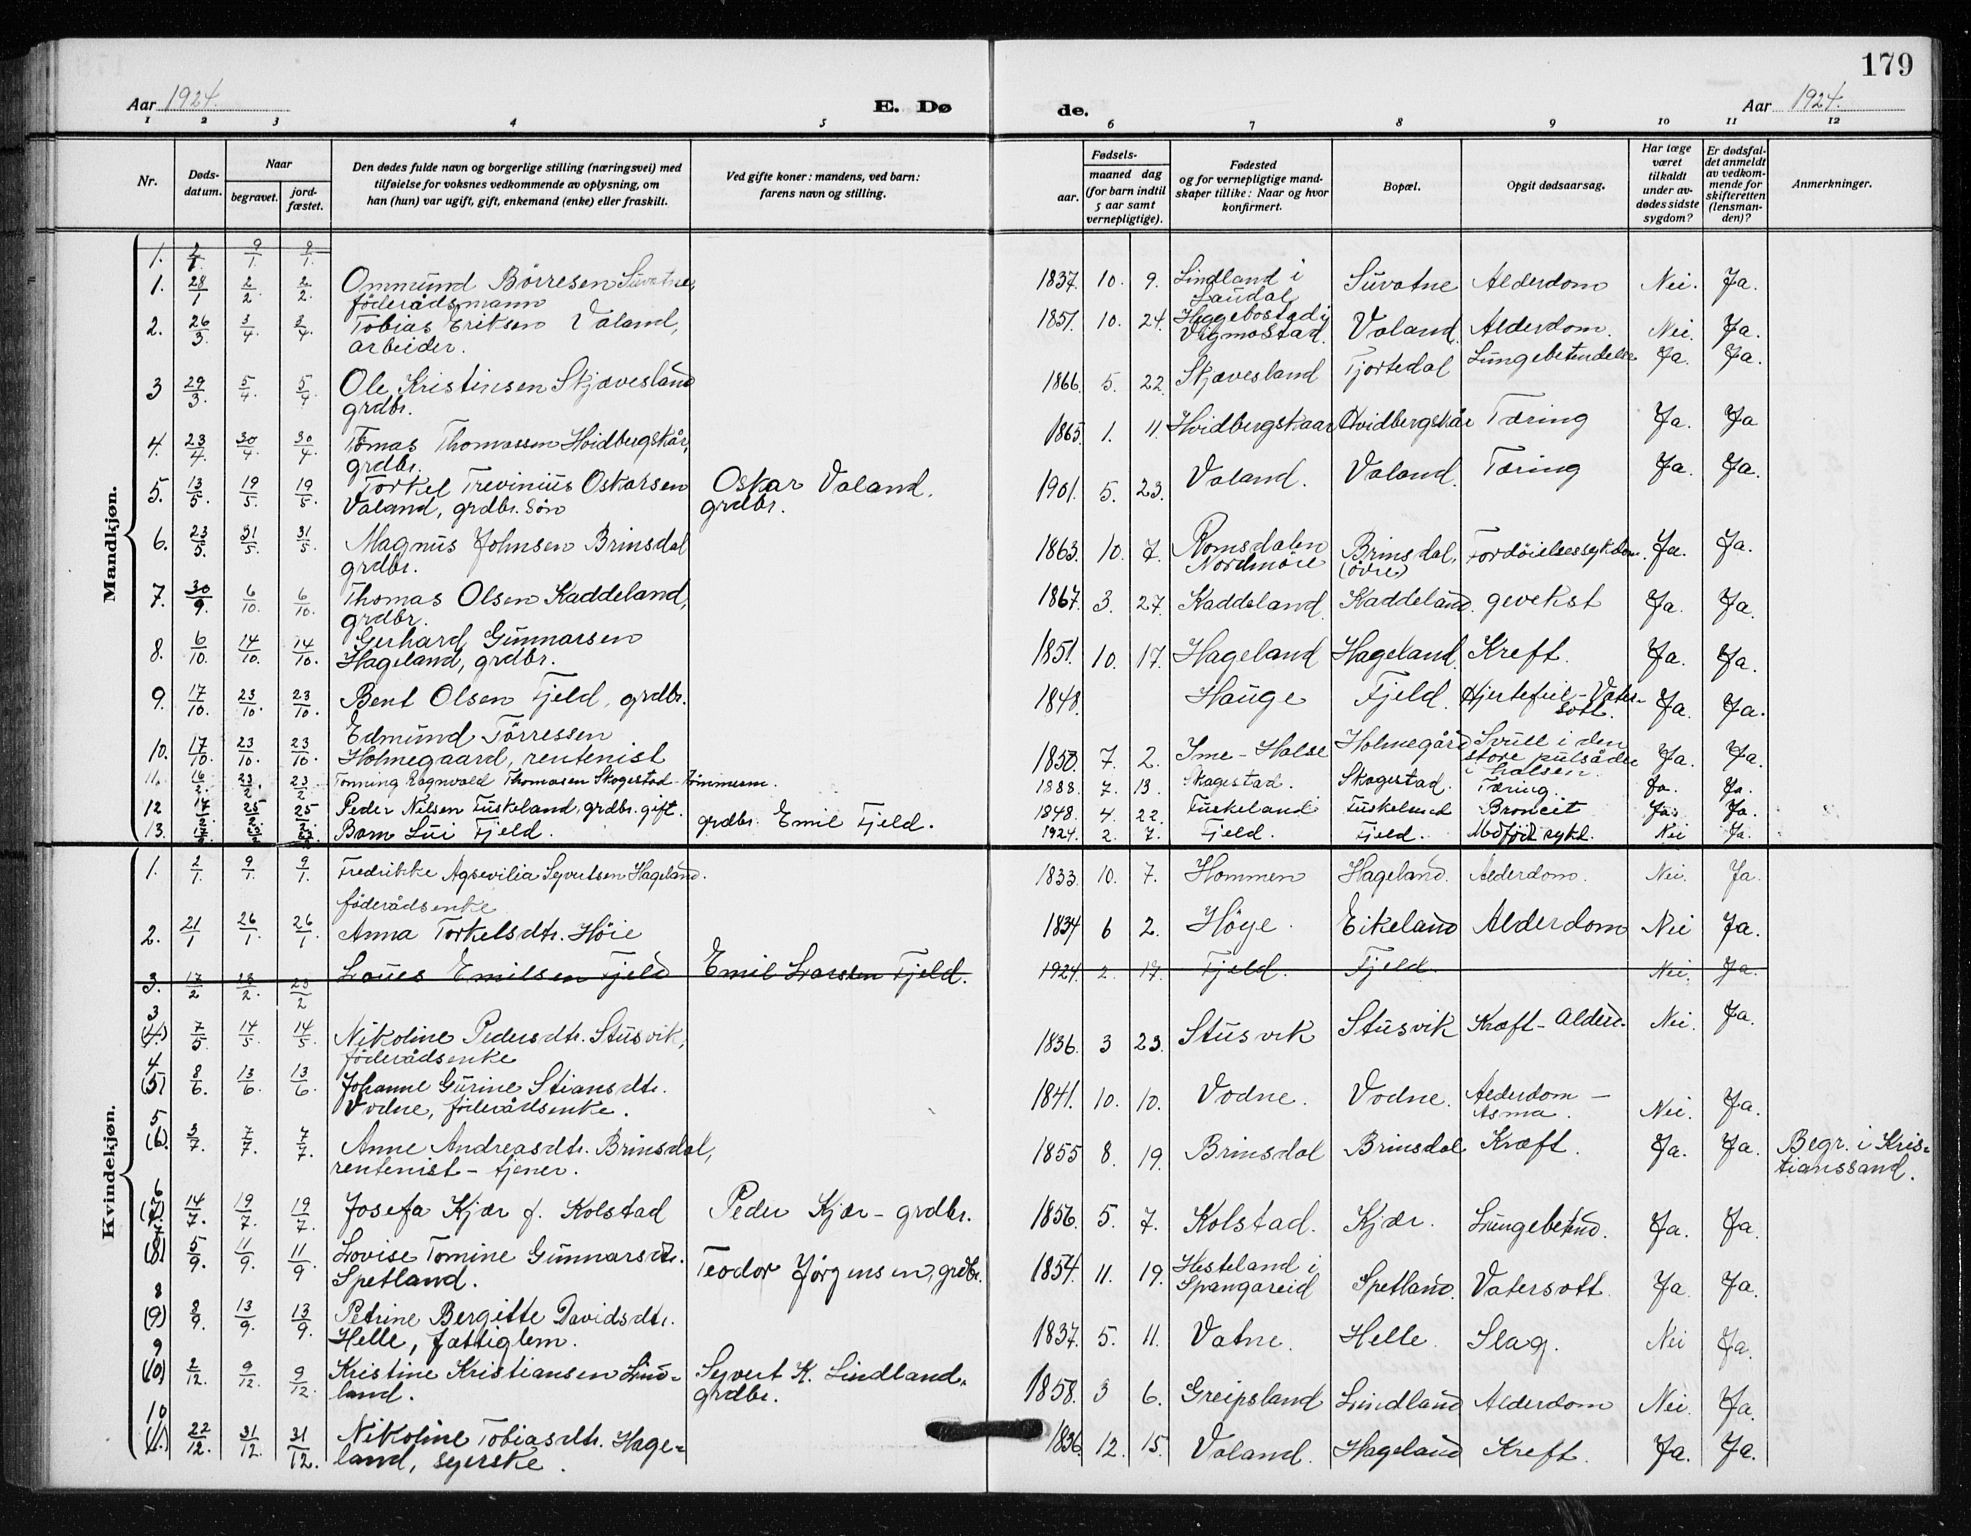 179
Aar 1924. E. Dø de. Aar 1924.
1 2 3 4 5 6 7 8 9 10 11 12
Nr. Døds-datum. Naar begravet. jord-fæstet. Den dødes fulde navn og borgerlige stilling (næringsvei) med tilføielse for voksnes vedkommende av oplysning, om han (hun) var ugift, gift, enkemand (enke) eller fraskilt. Ved gifte koner: mandens, ved barn: farens navn og stilling. Fødsels- aar. maaned dag (for barn indtil 5 aar samt vernepligtige). Fødested og for vernepligtige mandskaper tillike: Naar og hvor konfirmert. Bopæl. Opgit dødsaarsag. Har læge været tilkaldt under avdødes sidste sygdom? Er dødsfaldet anmeldt av vedkommende for skifteretten (lensmanden)? Anmerkninger.
Mandkjøn.
1. 2/1. 9/1. 9/1.
1. 28/1 2/2. 2/2. Ommund Börresen Suvatne, 1837. 10. 9. Lindland i Suvatne Alderdom Nei. Ja.
föderådsmann Laudal
2. 26/3. 3/4. 3/4. Tobias Eriksen Valand, 1851. 10. 24. Heggebostad i Valand. Alderdom. Nei Ja.
arbeider. Vigmostad.
3 29/3. 5/4. 5/4. Ole Kristinsen Skjævesland 1866. 5. 22. Skjævesland Fjortedal Lungebetendelse Ja. Ja.
grdbr.
4. 23/4. 30/4. 30/4. Tomas Thomassen Hvidbergskår, 1865. 1. 11. Hvidbergskaar Hvidbergskår Tæring Ja. Ja
grdbr.
5. 13/5. 19/5. 19/5. Torkel Trevinius Oskarsen Oskar Valand. 1901. 5. 23. Valand. Valand. Tæring Ja. Ja.
Valand, grdbr. sön grdbr.
6. 23/5 31/5. 31/5. Magnus Johnsen Brinsdal 1863. 10. 7. Romsdalen Brinsdal, Fordöielsessykdom. Ja. Ja.
grdbr. Nordmöre (övre)
7. 30/9. 6/10. 6/10. Thomas Olsen Kaddeland, 1867. 3. 27. Kaddeland. Kaddeland. gevekst Ja. Ja.
grdbr.
8. 6/10. 14/10. 14/10. Gerhard Gunnarsen 1851. 10. 17. Hageland Hageland. Kreft. Ja. Ja.
Hageland, grdbr.
9. 17/10. 23/10. 23/10. Bent Olsen Fjeld, grdbr. 1848. Hauge Fjeld. Hjertefeil - Vater- Ja. Ja.
sott.
10. 17/10. 23/10. 23/10. Edmund Törressen 1850. 7. 2. Ime - Halse Holmegård Svull i den Ja. Ja.
Holmegaard, rentenist store pulsåder
i halsen.
11. 16/2. 23/2. 23/2 Tonning Ragnvald Thomasen Skogestad 1888. 7. 13. Skagestad. Skogestad. Tæring. Ja. Ja.
12 17/2. 25/2. 25/2 Peder Nilsen Tuskeland, grdbr. gift. 1848. 4. 22. Tuskeland Tuskeland Broncit Ja. Ja.
13. Barn Fjeld. grdbr. Emil Fjeld. 1924. 2. 7. Fjeld. Fjeld. Medfödt sykd. Nei Ja.
Kvindekjøn.
1. 2/1. 9/1. 9/1. Fredrikke Agsevilia Syvertsen Hageland. 1833. 10. 7. Hommen Hageland. Alderdom. Nei. Ja.
föderådsenke.
2. 21/1 26/1. 26/1 Anna Torkelsdtr. Höie 1834 6 2. Höye. Eikeland Alderdom Nei Ja.
3. 17/2 23/2. 23/2 Emilsen Fjeld Emil Larsen Fjeld. 1924 2. 17. Fjeld. Fjeld. Nei. Ja.
3
(4) 7/5. 14/5. 14/5. Nikoline Pedersdtr. Stusvik, 1836. 3 23. Stusvik Stusvik Kræft - Alder. Nei. Ja.
föderådsenke
4
(5) 8/6. 13/6. 13/6. Johanne Gurine Stiansdtr. 1841. 10. 10. Vodne. Vodne. Alderdom - Nei. Ja.
Vodne, föderådsenke. Asma.
5
(6) 3/7. 7/7. 7/7. Anne Andreasdtr. Brinsdal, 1855 8. 19. Brinsdal Brinsdal Kræft. Ja. Ja. Begr. i Kris-
rentenist - tjener. tianssand.
6
(7) 14/7. 19/7. 19/7. Josefa Kjær f. Kolstad Peder Kjær - grdbr. 1856. 5. 7. Kolstad. Kjær. Lungebetend. Ja. Ja.
7
(8) 5/9. 11/9. 11/9 Lovise Tomine Gunnarsdtr. Teodor Jørgensen, grdbr. 1854. 11. 19. Hesteland i Spetland. Vatersott. Ja. Ja.
Spetland. Spangareid
8
(9) 8/9. 13/9. 13/9. Petrine Bergitte Davidsdtr. 1837. 5. 11. Vatne. Helle. Slag. Nei Ja.
Helle, fattiglem.
9
(10) 2/12. 9/12. 9/12. Kristine Kristiansen Lind- Syvert K. Lindland. 1858. 3 6. Greipsland Lindland Alderdom Nei. Ja.
land. grdbr.
10
(11.) 22/12. 31/12. 31/12. Nikoline Tobiasdtr. Hage- 1836 12. 15. Valand. Hageland Kreft. Ja. Ja.
land, syerske.